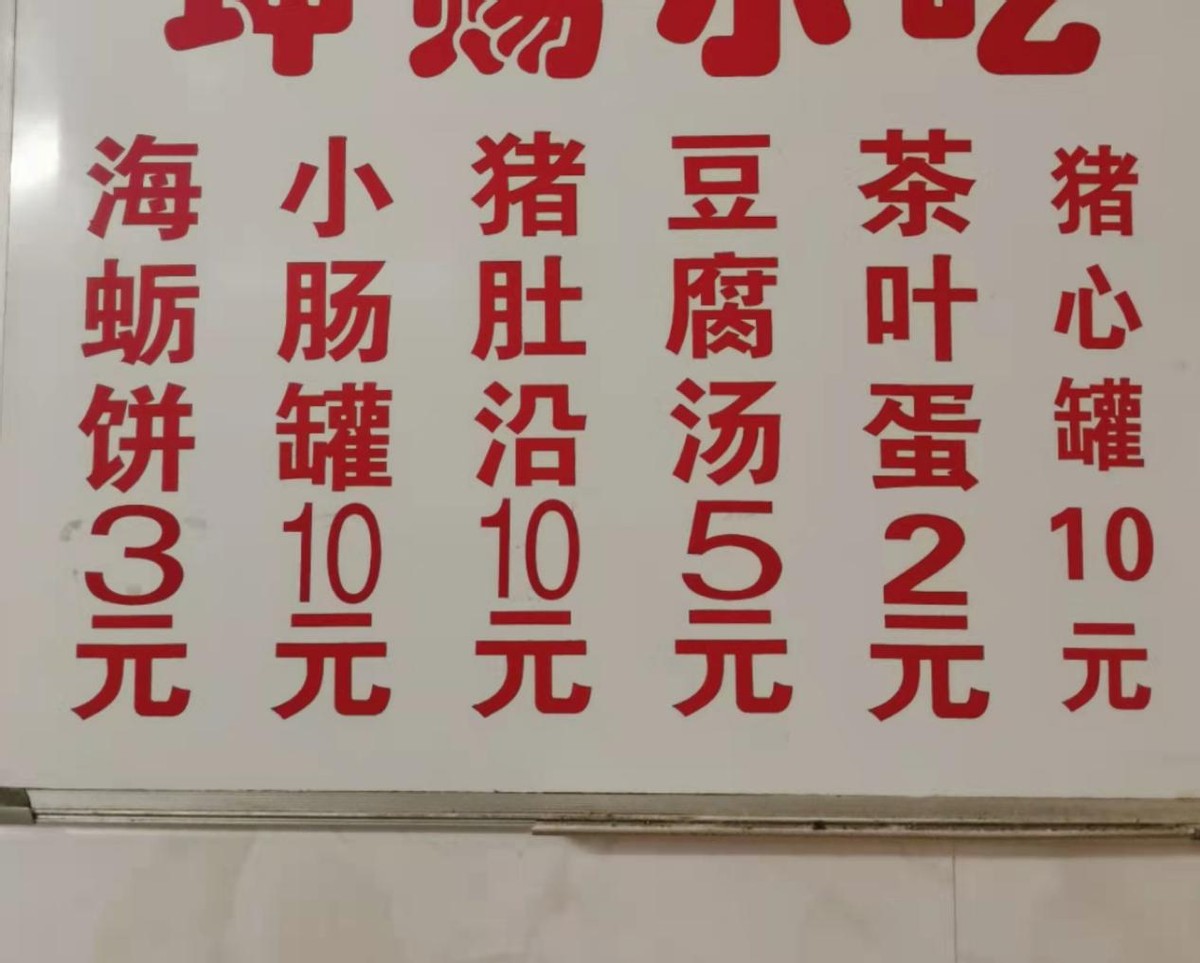 小吃
海蛎饼3元
小肠罐10元
猪肚沿10元
豆腐汤5元
茶叶蛋2元
猪心罐10元